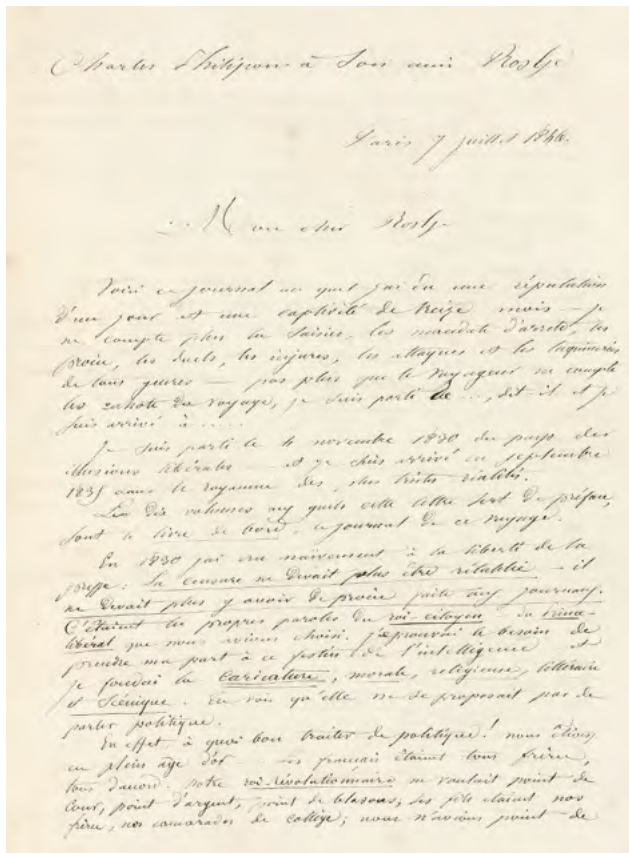 Charles Philipon à Son ami Roslje
Paris 7 juillet 1846.
Mon cher Roslje
Voici ce journal au quel j'ai dû une réputation
d'un jour et une captivité de treize mois — je
ne compte plus les saisies, les mandats d'arrêts, les
procès, les duels, les injures, les attaques et les taquineries
de tous genres — pas plus que le voyageur ne compte
les cahots du voyage, je suis parti de ..., dit-il et je
suis arrivé à .....
Je suis parti le 4 novembre 1830 du pays des
illusions libérales — et je suis arrivé en septembre
1835 dans le royaume des plus tristes réalités.
Les dix volumes aux quels cette lettre sert de préface,
sont le livre de bord, le journal de ce voyage.
En 1830 j'ai cru naïvement à la liberté de la
presse : la censure ne devait plus être rétablie — il
ne devait plus y avoir de procès faits aux journaux.
C'étaient les propres paroles du roi-citoyen — du
libéral que nous avions choisi. J'éprouvai le besoin de
prendre ma part à ce festin de l'intelligence et
je fondai la Caricature, morale, religieuse, littéraire
et Scénique. On voit qu'elle ne se proposait pas de
parler politique.
En effet, à quoi bon traiter de politique ! nous étions
en plein âge d'or — les français étaient tous frères,
tous d'accord. notre roi-révolutionnaire ne voulait point de
cour, point d'argent, point de blasons, ses fils étaient nos
frères, nos camarades de collège ; nous n'avions point de